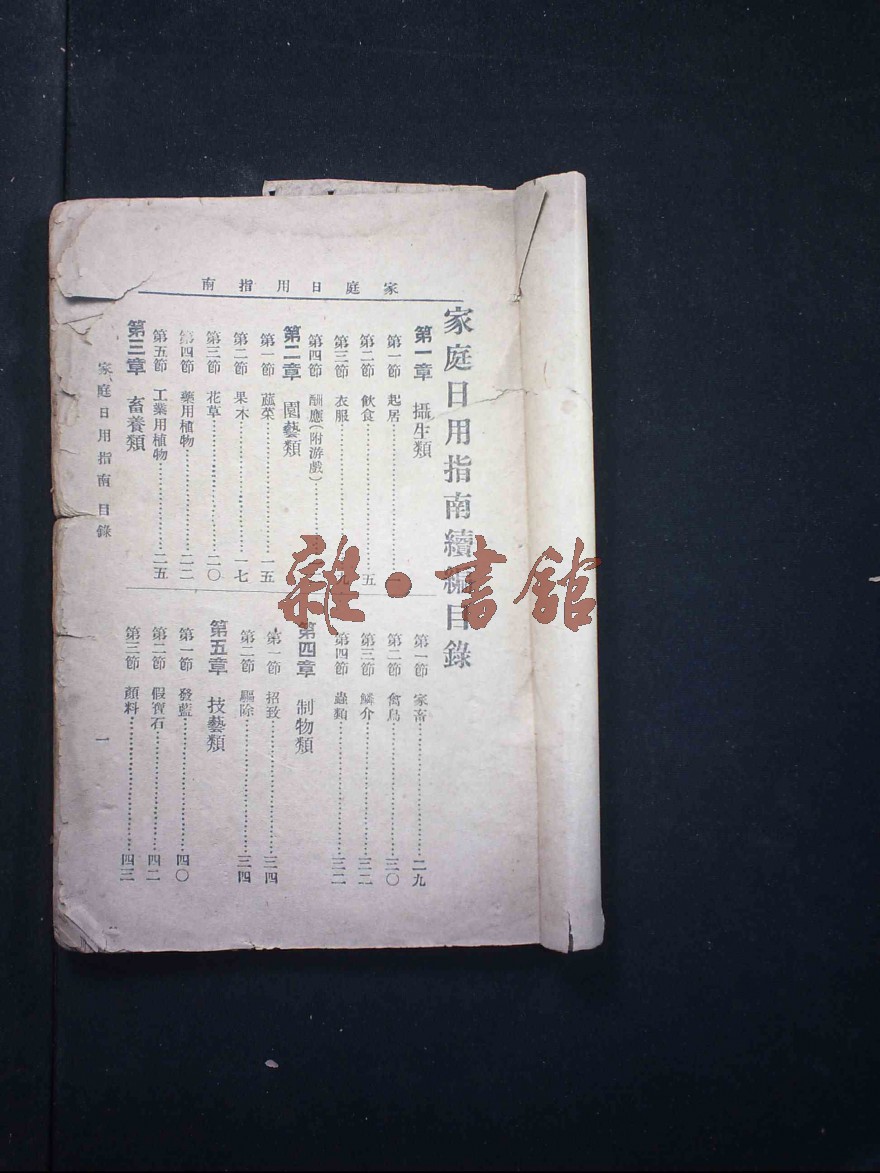 家庭日用指南
家庭日用指南續編目錄
第一章 攝生類
第一節 起居……一
第二節 飲食……五
第三節 衣服……九
第四節 酬應(附游戲)……
第二章 園藝類
第一節 蔬菜……一五
第二節 果木……一七
第三節 花草……二〇
第四節 藥用植物……二二
第五節 工業用植物……二五
第三章 畜養類
第一節 家畜……二九
第二節 禽鳥……三〇
第三節 鱗介……三二
第四節 蟲類……三二
第四章 制物類
第一節 招致……三四
第二節 驅除……三四
第五章 技藝類
第一節 發藍……四〇
第二節 假寶石……四二
第三節 顏料……四三
家庭日用指南 目錄
一
雜·書館